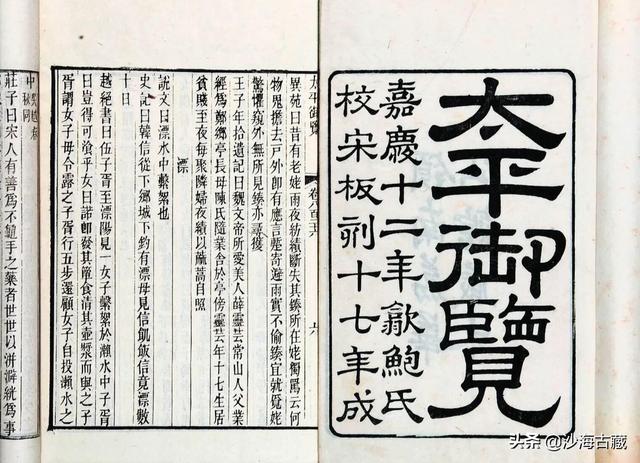 太平御覽
嘉慶十二年歙鮑氏
校宋板刻十七年成
太平御覽 卷八百二十六 六
異苑曰昔有老姥雨夜紡績斷失其鍭所在姥獨罵云何
物鬼擔去戶外即有應言蹔寄避雨實不偷鍭宜就覓姥
驚懼窺外無所見鍭亦尋獲
王子年拾遺記曰魏文帝所愛美人薛靈芸常山人父業
經爲鄭鄉亭長母陳氏隨業舍於亭傍靈芸年十七生居
貧賤至夜每聚隣婦夜績以麻蒿自照
漂
說文曰漂水中繫絮也
史記曰韓信從下鄉城下釣有漂母見信飢飯信竟漂數
十日
越絕書曰伍子胥至漂陽見一女子繫絮於瀨水中子胥
曰豈得可湌乎女曰諾即發其簞食清其壺漿而與之子
胥謂女子毋令露之子胥行五步還顧女子自投瀨水之
中
莊子曰宋人有善爲不龜手之藥者世世以洴澼絖爲事
头条 @沙海古藏